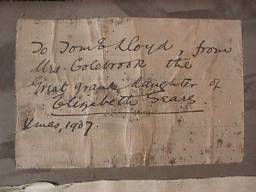 To Tom E Lloyd, from
Mrs. Colebrook the
Great grand daughter of
Elizabeth Sears
Xmas, 1907.